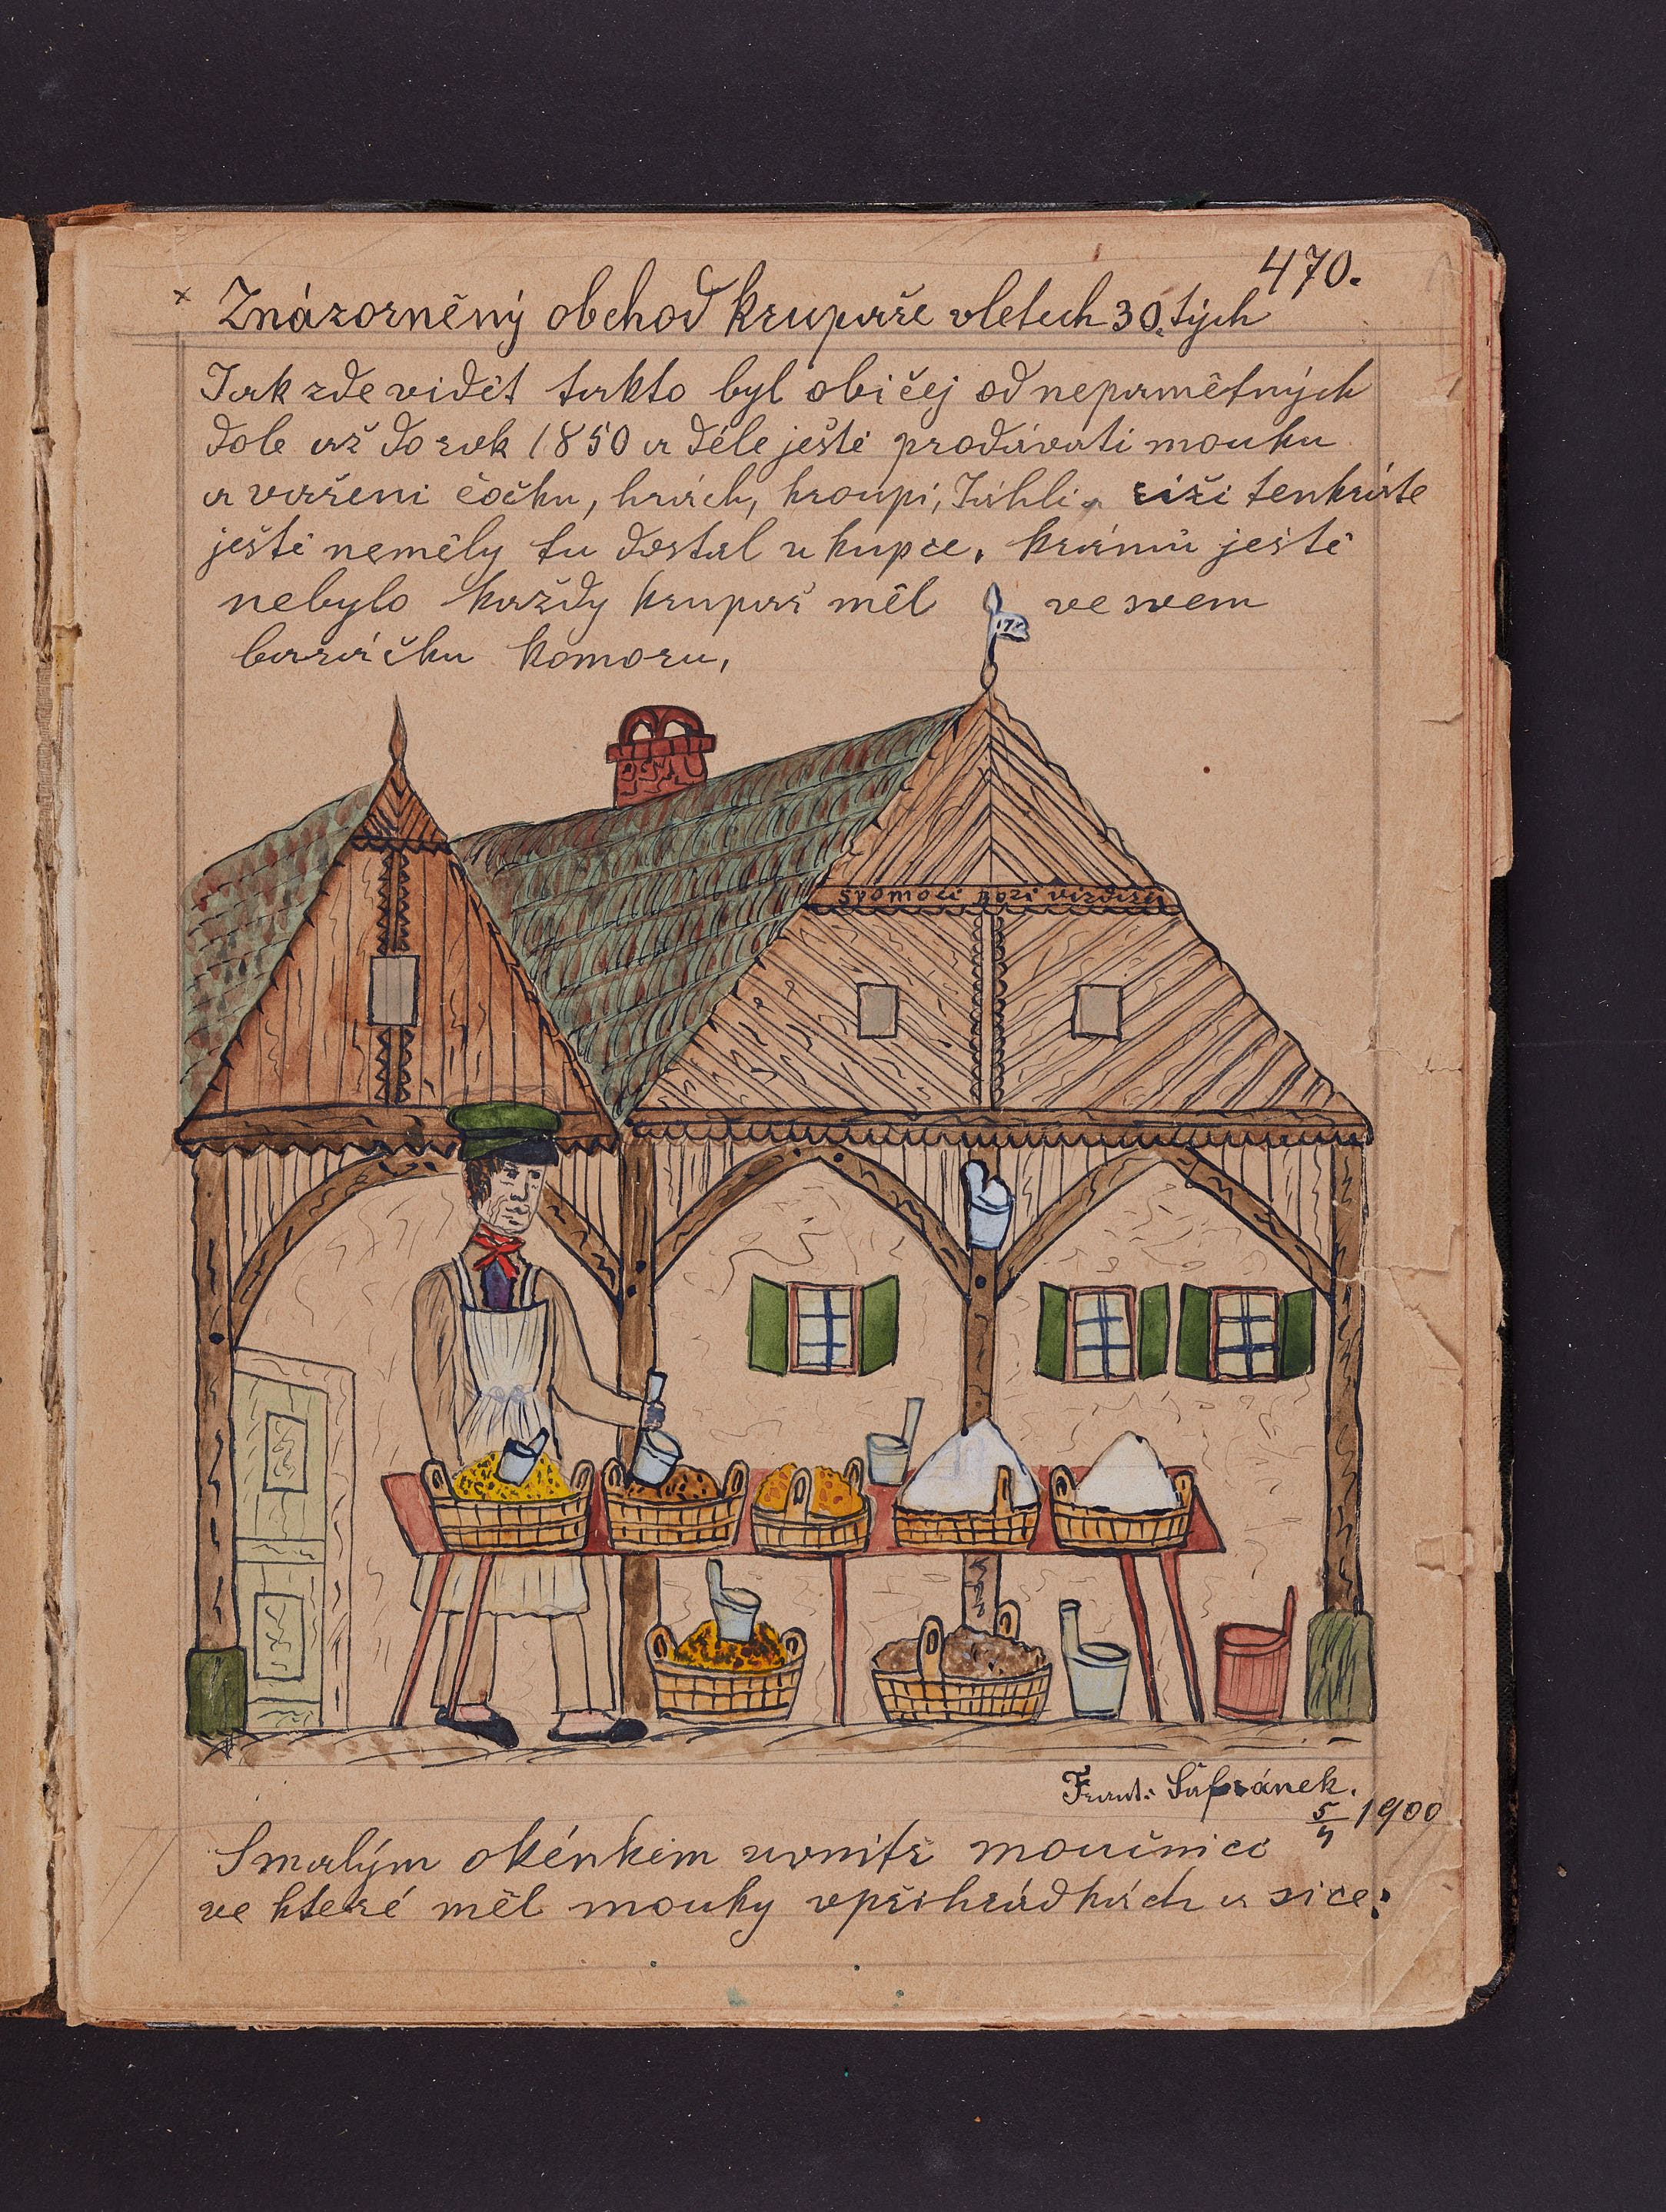 470.
× Znázorněný obchod krupaře vletech 30.tých
Jak zde vidět takto byl običej od nepamětných
dob až do rok 1850 a déle ještě prodávati mouku
a vařeni čočku, hrách, kroupi, Jáhli a riži tenkráte
ještě neměly tu dostal u kupce. krámů ještě
nebylo každy krupař měl ve svem
baráčku komoru,
17
Spomocí Bozi
Frant: Šafránek.
5/4 1900
Smalým okénkem uvnitř moučnici
ve které měl mouky vpřihrádkách a sice: